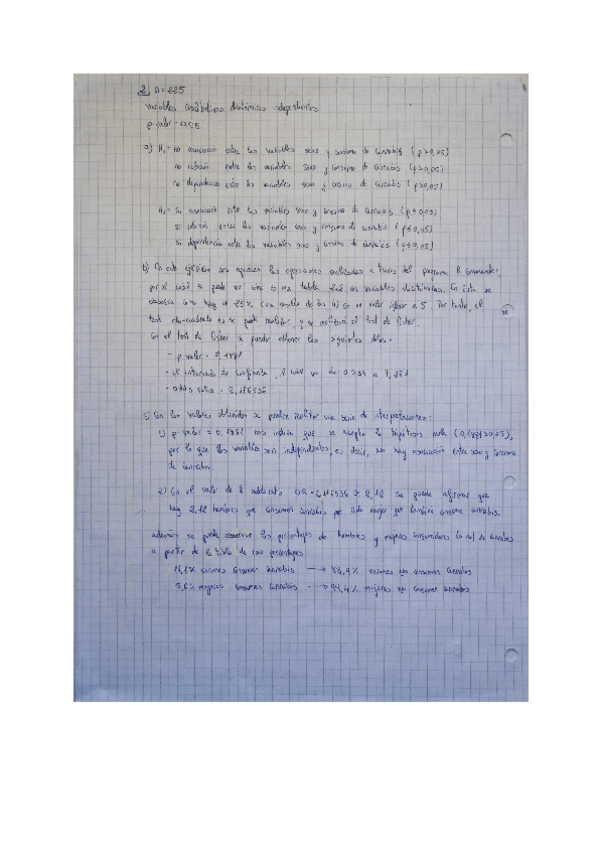 2. n = 225
variables cualitativas dicotómicas independientes
p-valor =
a) H₀ = no asociación entre las variables sexo y consumo de cannabis (p>0,05)
no relación entre las variables sexo y consumo de cannabis (p>0,05)
no dependencia entre las variables sexo y consumo de cannabis (p>0,05)
H₁ = Si asociación entre las variables sexo y consumo de cannabis (p≤0,05)
si relación entre las variables sexo y consumo de cannabis (p≤0,05)
Si dependencia entre las variables sexo y consumo de cannabis (p≤0,05)
b) En este ejercicio las operaciones realizadas a través del programa R Commander,
por el cual se puede ver una tabla 2x2 de variables dicotómicas. En esta se
observa como hay un 25% (una casilla de las 4) con un valor inferior a 5. Por tanto, el
test chi-cuadrado no se puede realizar, y se realizará el test de Fisher.
En el test de Fisher se pueden obtener los siguientes datos:
- p valor =
- el intervalo de confianza, el cual va de
- odds ratio = 2,116536
c) Con los valores obtenidos se pueden realizar una serie de interpretaciones:
1) p-valor = nos indica que se acepta la hipótesis nula
por lo que las variables son independientes, es decir, no hay asociación entre sexo y consumo
de cannabis.
2) Con el valor de odds ratio, OR = 2,116536 ≈ 2,12 se puede afirmar que
hay 2,12 hombres que consumen cannabis por cada mujer que también consume cannabis.
además se puede observar los porcentajes de hombres y mujeres consumidores (o no) de cannabis
a partir de la tabla de los porcentajes:
11,1% varones consumen cannabis → 88,9% varones no consumen cannabis
5,6% mujeres consumen cannabis → 94,4% mujeres no consumen cannabis